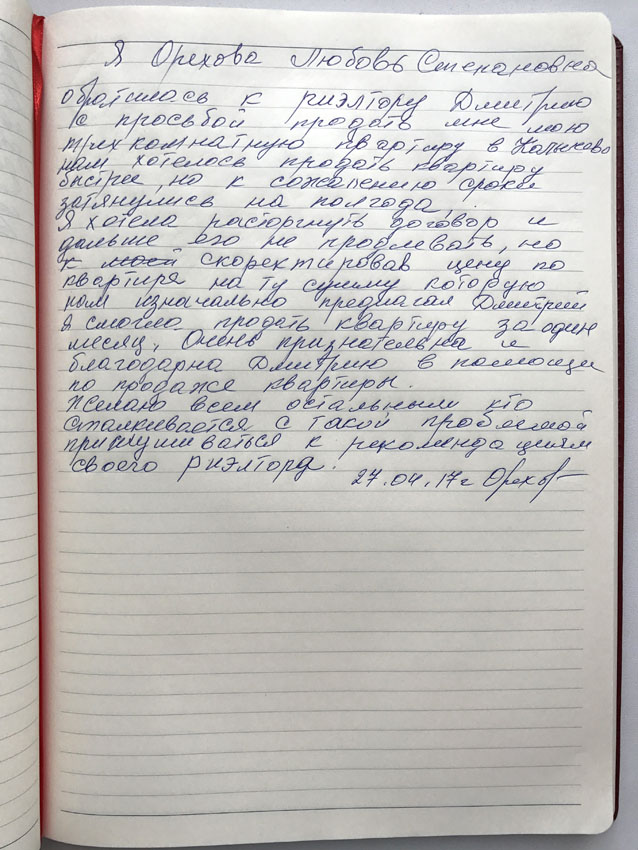 Я Орехова Любовь Степановна
обратилась к риэлтору Дмитрию
с просьбой продать мне мою
трёхкомнатную квартиру в Калычево
нам хотелось продать квартиру
быстрее, но к сожалению сроки
затянулись на полгода.
Я хотела расторгнуть договор и
дальше его не продлевать, но
скоректировав цену по
квартире на ту сумму которую
нам изначально предлагал Дмитрий
я смогла продать квартиру за один
месяц. Очень признательна и
благодарна Дмитрию в помощи
по продаже квартиры.
Желаю всем остальным кто
сталкивается с такой проблемой
прислушиваться к рекомендациям
своего риэлтора.
27.04.17г Орехов